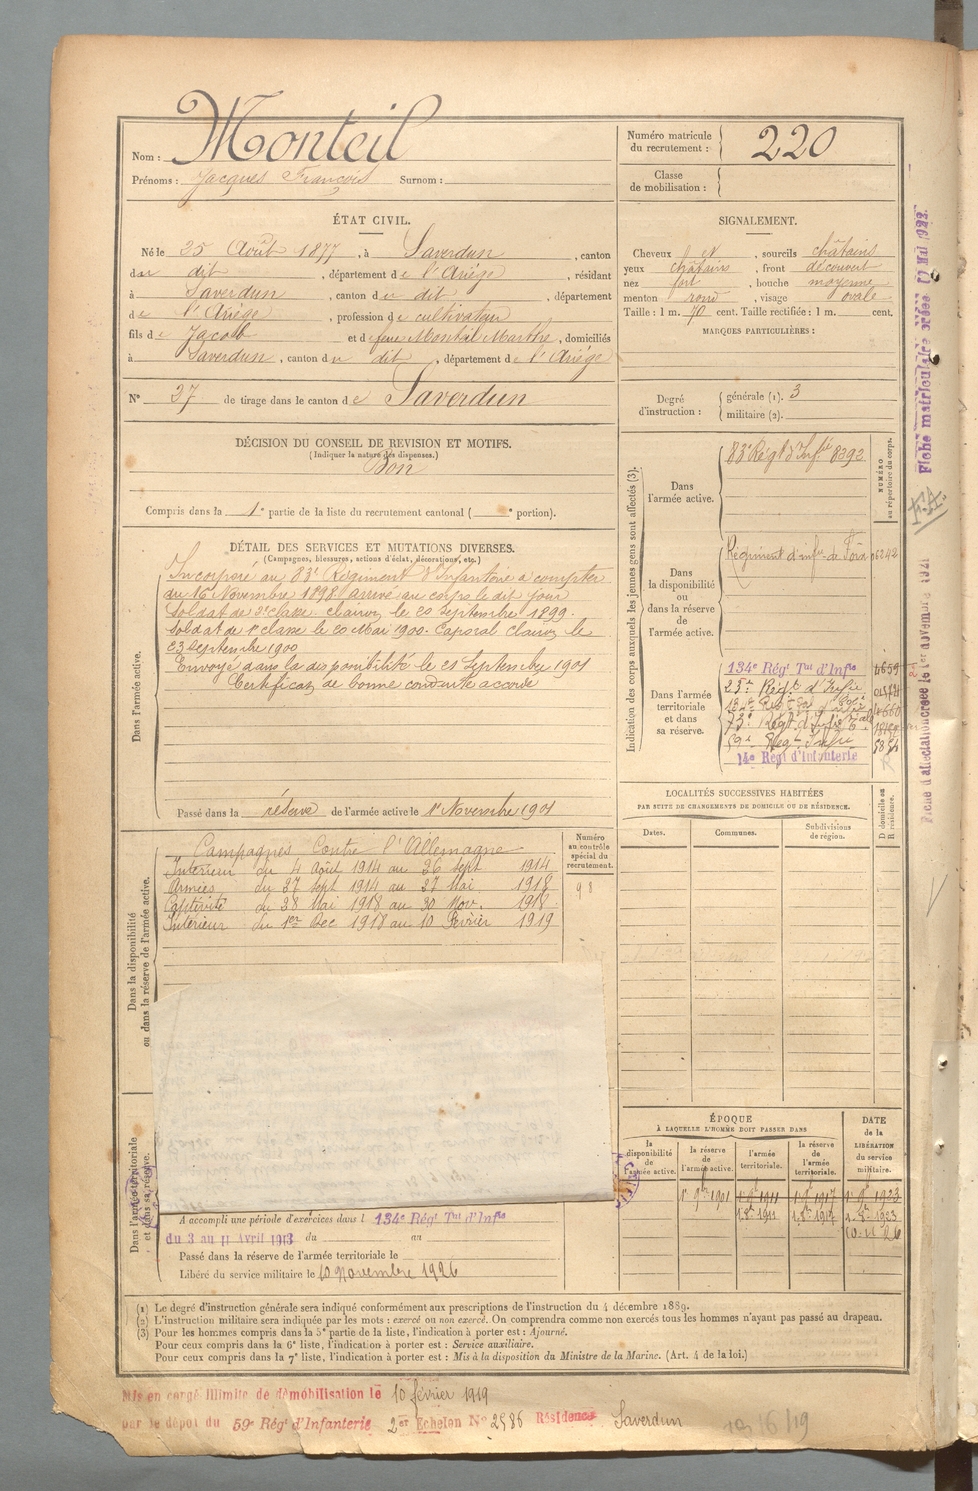 Nom : Monteil
Prénoms : Jacques François Surnom :
Numéro matricule du recrutement : 220
Classe de mobilisation :
ÉTAT CIVIL.
Né le 25 Août 1877, à Saverdun, canton
du dit, département de l'Ariège, résidant
à Saverdun, canton du dit, département
de l'Ariège, profession de cultivateur
fils de Jacob et de feue Monteil Marthe, domiciliés
à Saverdun, canton du dit, département de l'Ariège
N° 37 de tirage dans le canton de Saverdun
SIGNALEMENT.
Cheveux et, sourcils châtains
yeux châtains, front découvert
nez fort, bouche moyenne
menton rond, visage ovale
Taille : 1 m. 70 cent. Taille rectifiée : 1 m. cent.
MARQUES PARTICULIÈRES :
Degré d'instruction : générale (1). 3
militaire (2).
DÉCISION DU CONSEIL DE REVISION ET MOTIFS.
(Indiquer la nature des dispenses.)
Bon
Compris dans la 1e partie de la liste du recrutement cantonal ( e portion).
DÉTAIL DES SERVICES ET MUTATIONS DIVERSES.
(Campagnes, blessures, actions d'éclat, décorations, etc.)
Dans l'armée active.
Incorporé au 83e Régiment d'Infanterie a compter
du 16 Novembre 1898 arrivé au corps le dit jour
Soldat de 2e classe clairon le 20 Septembre 1899.
Soldat de 1e classe le 20 Mai 1900. Caporal clairon le
23 Septembre 1900
Envoyé dans la disponibilité le 21 Septembre 1901
Certificat de bonne conduite accordé
Passé dans la réserve de l'armée active le 1er Novembre 1901
Indication des corps auxquels les jeunes gens sont affectés (3).
NUMÉRO au répertoire du corps.
Dans l'armée active.
83e Régt d'Infie 8392
Dans la disponibilité ou dans la réserve de l'armée active.
Régiment d'infie de Foix 06242
Dans l'armée territoriale et dans sa réserve.
134e Régt Tal d'Infie 4659
23e Régt d'Infie
73e Régt d'Infie
59e Régt Infie
14e Régt d'Infanterie
R
LOCALITÉS SUCCESSIVES HABITÉES
PAR SUITE DE CHANGEMENTS DE DOMICILE OU DE RÉSIDENCE.
Dates. Communes. Subdivisions de région.
D domicile ou R résidence.
Dans la disponibilité ou dans la réserve de l'armée active.
Numéro au contrôle spécial du recrutement.
98
Campagnes Contre l'Allemagne
Intérieur du 4 Août 1914 au 26 sept 1914
Armées du 27 sept 1914 au 27 Mai 1918
Captivité du 28 Mai 1918 au 30 Nov. 1918
Intérieur du 1er Dec 1918 au 10 Février 1919
ÉPOQUE
À LAQUELLE L'HOMME DOIT PASSER DANS
la disponibilité de l'armée active.
la réserve de l'armée active.
l'armée territoriale.
la réserve de l'armée territoriale.
DATE de la LIBÉRATION du service militaire.
1r 9bre 1901 1r 9 1911 1r 9 1917 1r 9 1923
1.8r 1911 1.8r 1917 1.8r 1923
10.11.26
Dans l'armée territoriale et dans sa réserve.
A accompli une période d'exercices dans l 134e Régt Tal d'Infie
du 3 au 11 Avril 1913 du au
Passé dans la réserve de l'armée territoriale le
Libéré du service militaire le 10 Novembre 1926
(1) Le degré d'instruction générale sera indiqué conformément aux prescriptions de l'instruction du 4 décembre 1889.
(2) L'instruction militaire sera indiquée par les mots : exercé ou non exercé. On comprendra comme non exercés tous les hommes n'ayant pas passé au drapeau.
(3) Pour les hommes compris dans la 5e partie de la liste, l'indication à porter est : Ajourné.
Pour ceux compris dans la 6e liste, l'indication à porter est : Service auxiliaire.
Pour ceux compris dans la 7e liste, l'indication à porter est : Mis à la disposition du Ministre de la Marine. (Art. 4 de la loi.)
Mis en congé illimité de démobilisation le 10 février 1919
par le dépôt du 59e Régt d'Infanterie 2er Echelon N° 2586 Résidence Saverdun
19/6/19
Fiche matriculaire créée
Fiche d'affectation créée le 1er novembre 1921